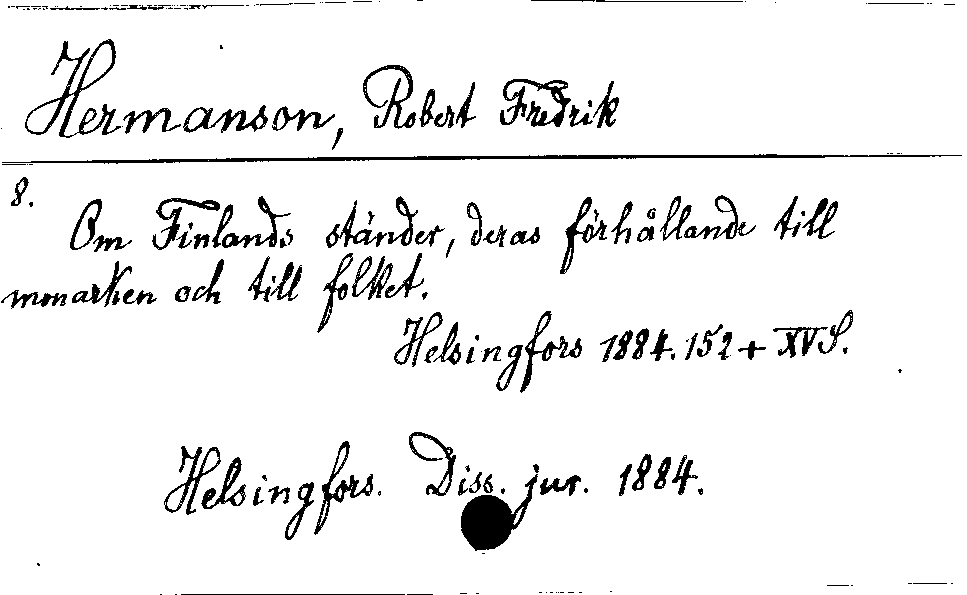 Hermanson, Robert Fredrik
8.
Om Finlands ständer, deras förhållande till
monarken och till folket.
Helsingfors 1884. 152 + XV S.
Helsingfors. Diss. jur. 1884.